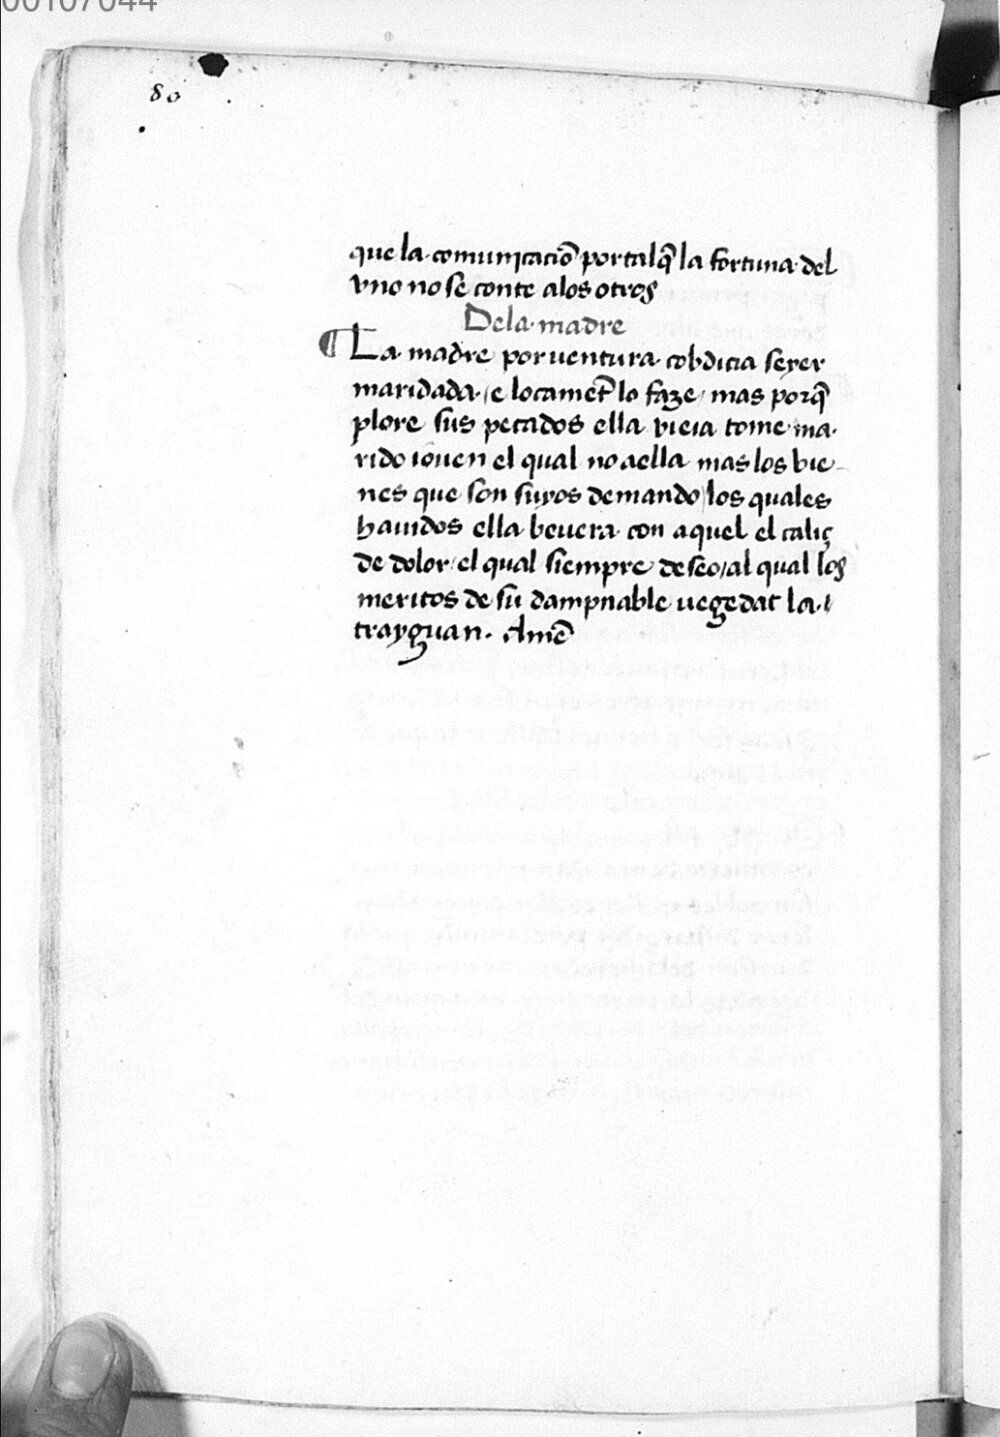 00107044
80
que la comunicaciõ por talq̃ la fortuna del
vno no se conte alos otros
Dela madre
¶ La madre por uentura cobdicia seyer
maridada / e locamẽt lo faze / mas porq̃
plore sus pecados ella vieia tome ma-
rido iouen el qual no aella mas los bie-
nes que son suyos demando / los quales
hauidos ella beuera con aquel el caliç
de dolor / el qual siempre deseo / al qual los
meritos de su dampnable uegedat la
trayguan. Amẽ